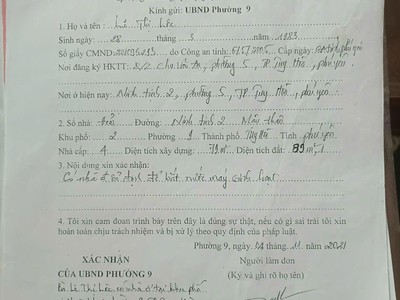 Kính gửi: UBND Phường 9
1. Họ và tên: Lê Thị Lốc
Sinh ngày: 28 tháng 3 năm 1983
Số giấy CMND: do Công an tỉnh: cấp ngày:
Nơi đăng ký HKTT: phường 5, TP Tuy Hòa, phú yên
Nơi ở hiện nay: Ninh tịnh 2, phường 5, TP Tuy Hòa, phú yên
2. Số nhà: Đường: Ninh tịnh 2
Khu phố: 2 Phường 9 Thành phố Tuy Hòa Tỉnh phú yên
Nhà cấp: 4 Diện tích xây dựng: 79m² Diện tích đất: 89m²
3. Nội dung xin xác nhận:
Có nhà ở ổn định để bắt nước máy sinh hoạt
4. Tôi xin cam đoan trình bày trên đây là đúng sự thật, nếu có gì sai trái tôi xin
hoàn toàn chịu trách nhiệm và bị xử lý theo quy định của pháp luật.
Phường 9, ngày 24 tháng 11 năm 2021
XÁC NHẬN Người làm đơn
CỦA UBND PHƯỜNG 9 (Ký và ghi rõ họ tên)
Bà Lê Thị Lốc có nhà ở tại khu phố